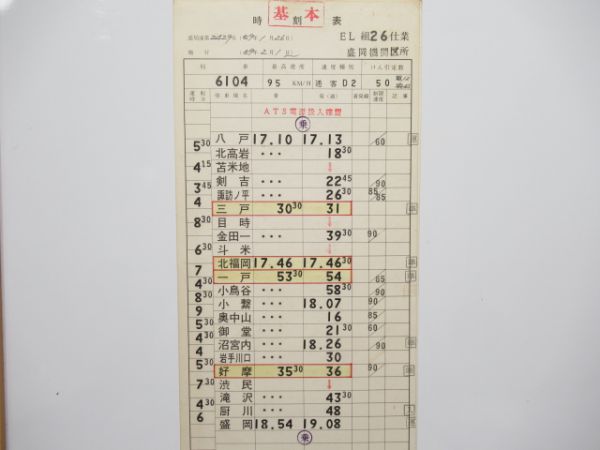 時刻表
基本
EL 組 26 仕業
盛岡機関区所
列車 最高速度 速度種別 けん引定数
6104 95 KM/H 通客D2 50
運転時分 停車場名 着 発(通) 着発線 制限速度 記事
ATS電源投入確認
乗
八戸 17.10 17.13 60
5 30
北高岩 ・・・ 18 30
4 15
苫米地 ↓
3 45
剣吉 ・・・ 22 45 90
諏訪ノ平 ・・・ 26 30 85 85
4
三戸 30 30 31
8 30
目時 ↓
金田一 ・・・ 39 30 90
6 30
斗米 ↓
北福岡 17.46 17.46 30
7
一戸 53 30 54 65
4 30
小鳥谷 ・・・ 58 30
8 30
小繋 ・・・ 18.07 90
9
奥中山 ・・・ 16 85
5 30
御堂 ・・・ 21 30 60
4 30
沼宮内 ・・・ 18.26 90
4
岩手川口 ・・・ 30
5 30
好摩 35 30 36 90
7 30
渋民 ↓
滝沢 ・・・ 43 30
4 30
厨川 ・・・ 48
6
盛岡 18.54 19.08
乗